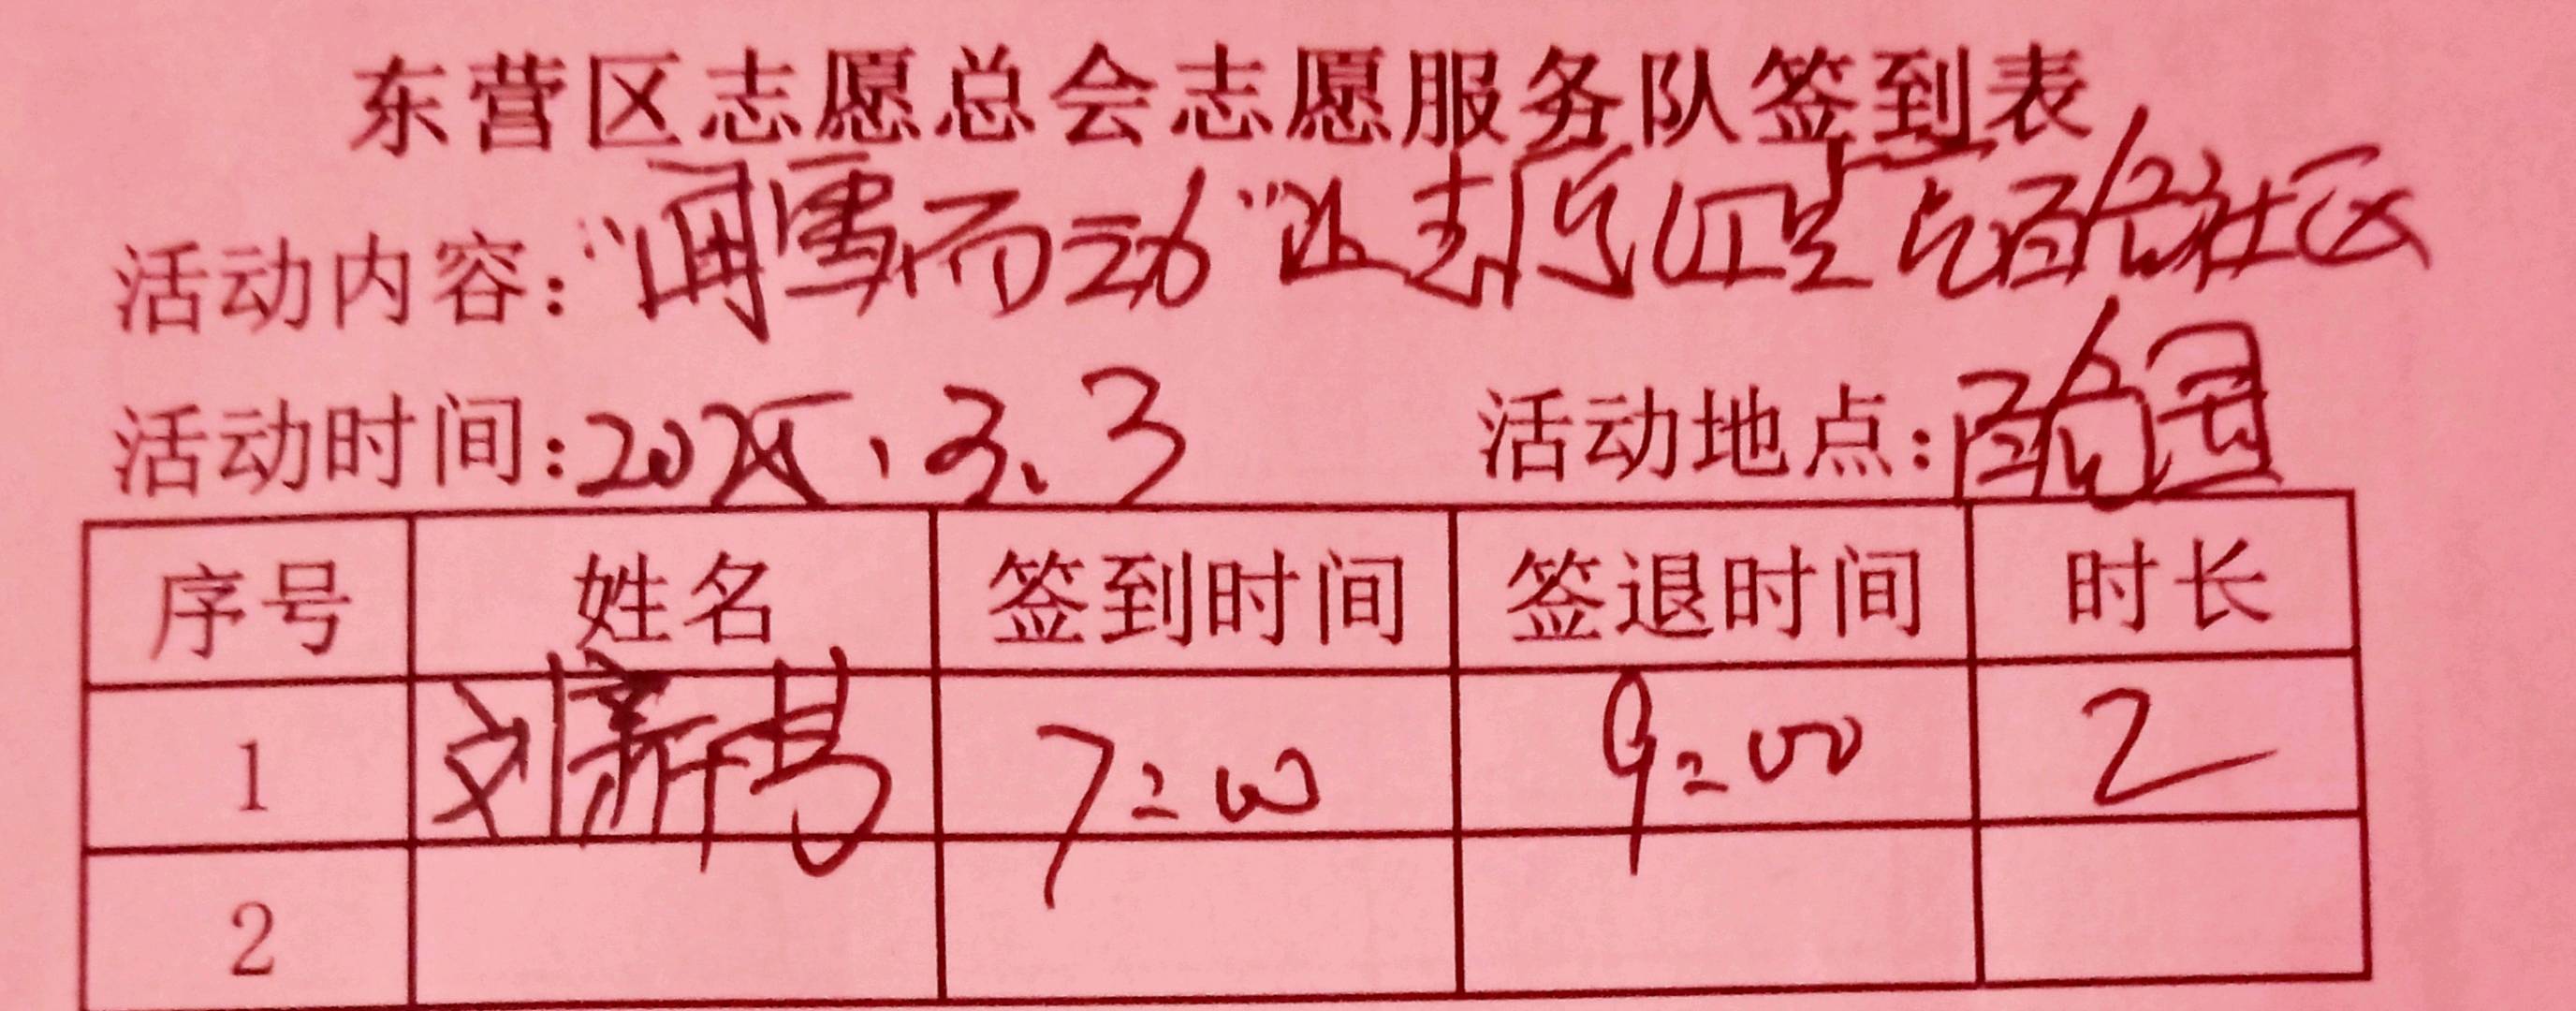 东营区志愿总会志愿服务队签到表
活动内容："闻雪而动"让志愿红星点社区
活动时间：2025、3、3 活动地点：
序号 姓名 签到时间 签退时间 时长
1 刘新 7:00 9:00 2
2